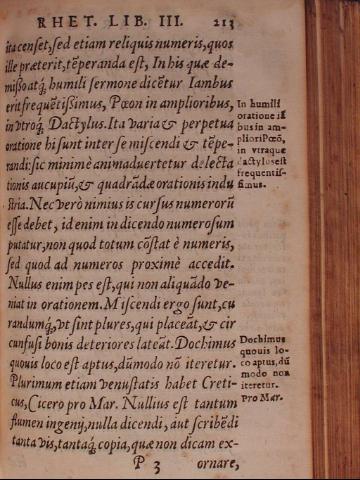 RHET. LIB. III. 213
ita censet, sed etiam reliquis numeris, quos
ille præterit, tēperanda est, In his quæ de-
mißoatq́; humili sermone dicētur Iambus
erit frequētißimus, Pæon in amplioribus,
in vtroq́; Dactylus. Ita varia & perpetua
oratione hi sunt inter se miscendi & tēpe-
randi: sic minimè animaduertetur delecta
tionis aucupiū, & quadrādæ orationis indu
stria. Nec verò nimius is cursus numerorū
esse debet, id enim in dicendo numerosum
putatur, non quod totum cōstat è numeris,
sed quod ad numeros proximè accedit.
Nullus enim pes est, qui non aliquādo ve-
niat in orationem. Miscendi ergo sunt, cu
randumq́; vt sint plures, qui placeāt, & cir
cunfusi bonis deteriores lateāt. Dochimus
quouis loco est aptus, dūmodo nō iteretur.
Plurimum etiam venustatis habet Creti-
cus, Cicero pro Mar. Nullius est tantum
flumen ingenij, nulla dicendi, aut scribēdi
tanta vis, tantaq́; copia, quæ non dicam ex-
P 3 ornare,
In humili
oratione iā
bus in am-
pliori Pæō,
in vtraque
dactylus est
frequentis-
simus.
Dochimus
quouis lo-
co aptus, dū
modo non
iteretur.
Pro Mar.